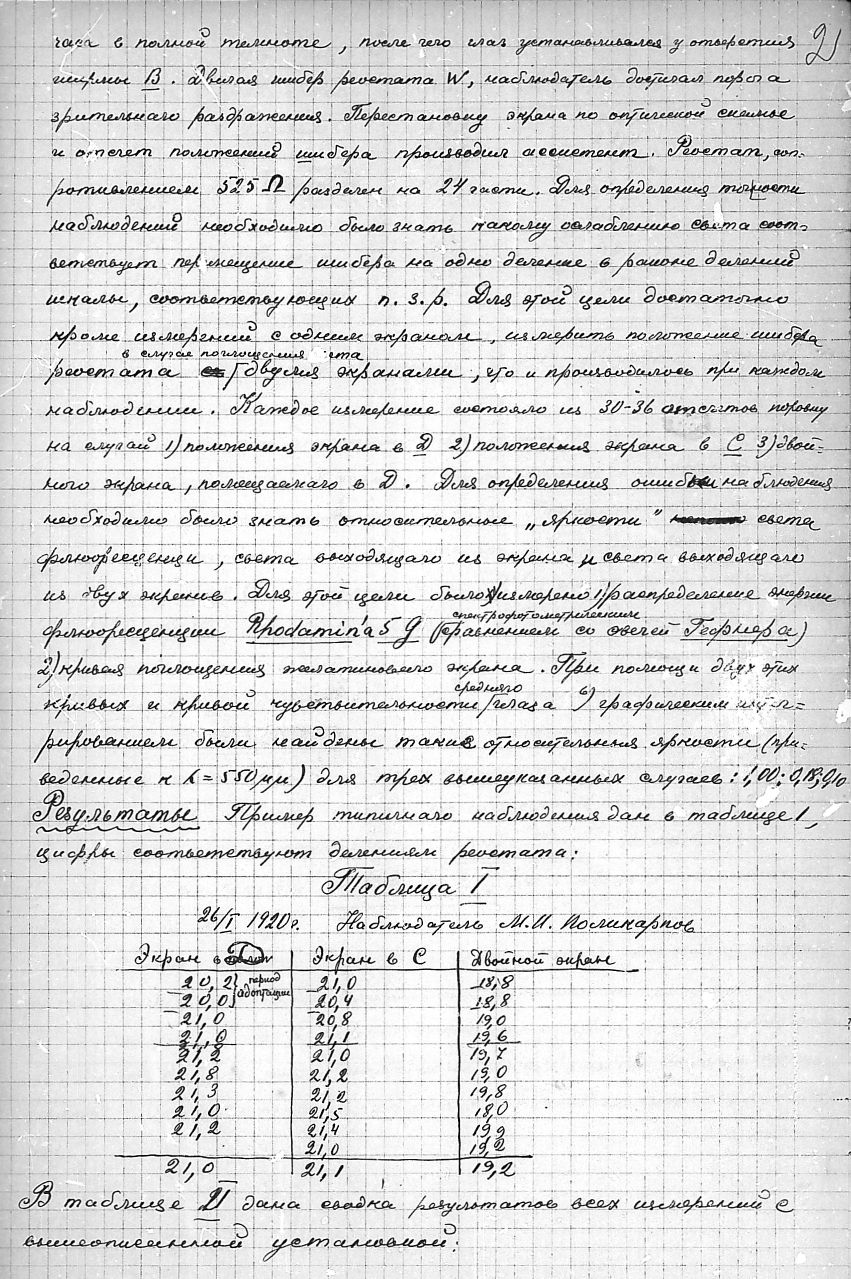 2
часа в полной темноте, после чего глаз устанавливался у отверстия
ширмы В. Двигая шибер реостата W, наблюдатель достигал порога
зрительнаго раздражения. Перестановку экрана по оптической скамье
и отсчет положений шибера производил ассистент. Реостат, соп-
ротивлением 525 Ω разделен на 24 части. Для определения точности
наблюдений необходимо было знать какому ослаблению света соот-
ветствует перемещение шибера на одно деление в районе делений
шкалы, соответствующих п. з. р. Для этой цели достаточно
кроме измерений с одним экраном, измерить положение шибера
в случае поглощения света
реостата двумя экранами, что и производилось при каждом
наблюдении. Каждое измерение состояло из 30-36 отсчетов поровну
на случай 1) положения экрана в D 2) положения экрана в С 3) двой-
ного экрана, помещаемаго в D. Для определения ошибки наблюдения
необходимо было знать относительные „яркости" света
флюоресценции, света выходящаго из экрана и света выходящаго
из двух экранов. Для этой цели было измерено 1) распределение энергии
спектрофотометрическим
флюоресценции Rhodamin'a 5 G (сравнением со свечей Гефнера)
2) кривая поглощения желатиноваго экрана. При помощи двух этих
средняго
кривых и кривой чувствительности глаза 6) графическим интег-
рированием были найдены такие относительныя яркости (при-
веденные к λ = 550 μμ) для трех вышеуказанных случаев: 1,00; 0,18; 0,10
Результаты Пример типичнаго наблюдения дан в таблице 1,
цифры соответствуют делениям реостата:
Таблица I
26/I 1920г. Наблюдатель М.И. Поликарпов
Экран в D Экран в С Двойной экран
20,2 } период 21,0 18,8
20,0 } адоптации 20,4 18,8
21,0 20,8 19,0
21,0 21,1 19,6
21,2 21,0 19,7
21,8 21,2 19,0
21,3 21,2 19,8
21,0 21,5 18,0
21,2 21,4 19,9
21,0 19,2
21,0 21,1 19,2
В таблице II дана сводка результатов всех измерений с
вышеописанной установкой: